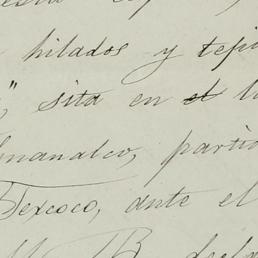 hilados y teji
" sita en el l
manalco, parti
Texcoco, ante el